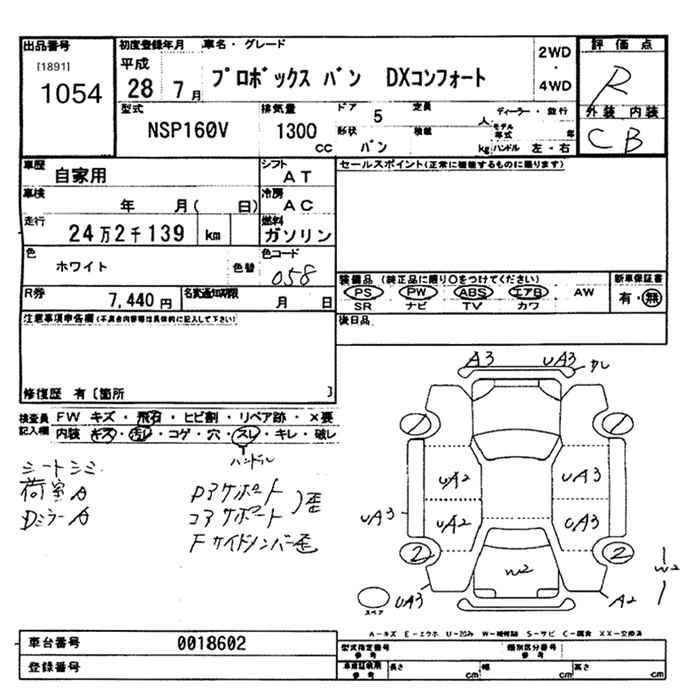 出品番号 初度登録年月 車名・グレード 2WD・4WD 評価点
[1891] 1054 平成 28 7月 プロボックス バン DXコンフォート R
型式 排気量 ドア 5 定員 人 ディーラー・並行 外装 内装
NSP160V 1300 cc 形状 バン 積載 kg モデル年式 年 ハンドル 左・右 C B
車歴 自家用 シフト AT セールスポイント(正常に機能するものに限ります)
車検 年 月( 日) 冷房 AC
走行 24万2千139 km 燃料 ガソリン
色 ホワイト 色替 色コード 058
装備品 (純正品に限り○をつけてください) 新車保証書
PS PW ABS エアB AW 有・無
SR ナビ TV カワ
R券 7,440円 名変通知期限 月 日
後日品
注意事項申告欄(不具合内容等は具体的に記入して下さい)
修復歴 有〔箇所 〕
検査員記入欄 FW キズ・飛石・ヒビ割・リペア跡・×要
内装 キズ・汚レ・コゲ・穴・スレ・キレ・破レ
ハンドル
シートシミ
荷室A
DミラーA
Pアサポート
コアサポート 歪
Fサイドメンバー歪
A3 UA3
UA2 UA3
UA3 UA2 UA3
2 2
W2 W2
スペア UA3 A2
A-キズ E-エクボ U-凹み W-補修跡 S-サビ C-腐食 XX-交換済
車台番号 0018602 型式指定番号 参考 類別区分番号 参考
登録番号 車検証積用 参考 長さ cm 幅 cm 高さ cm